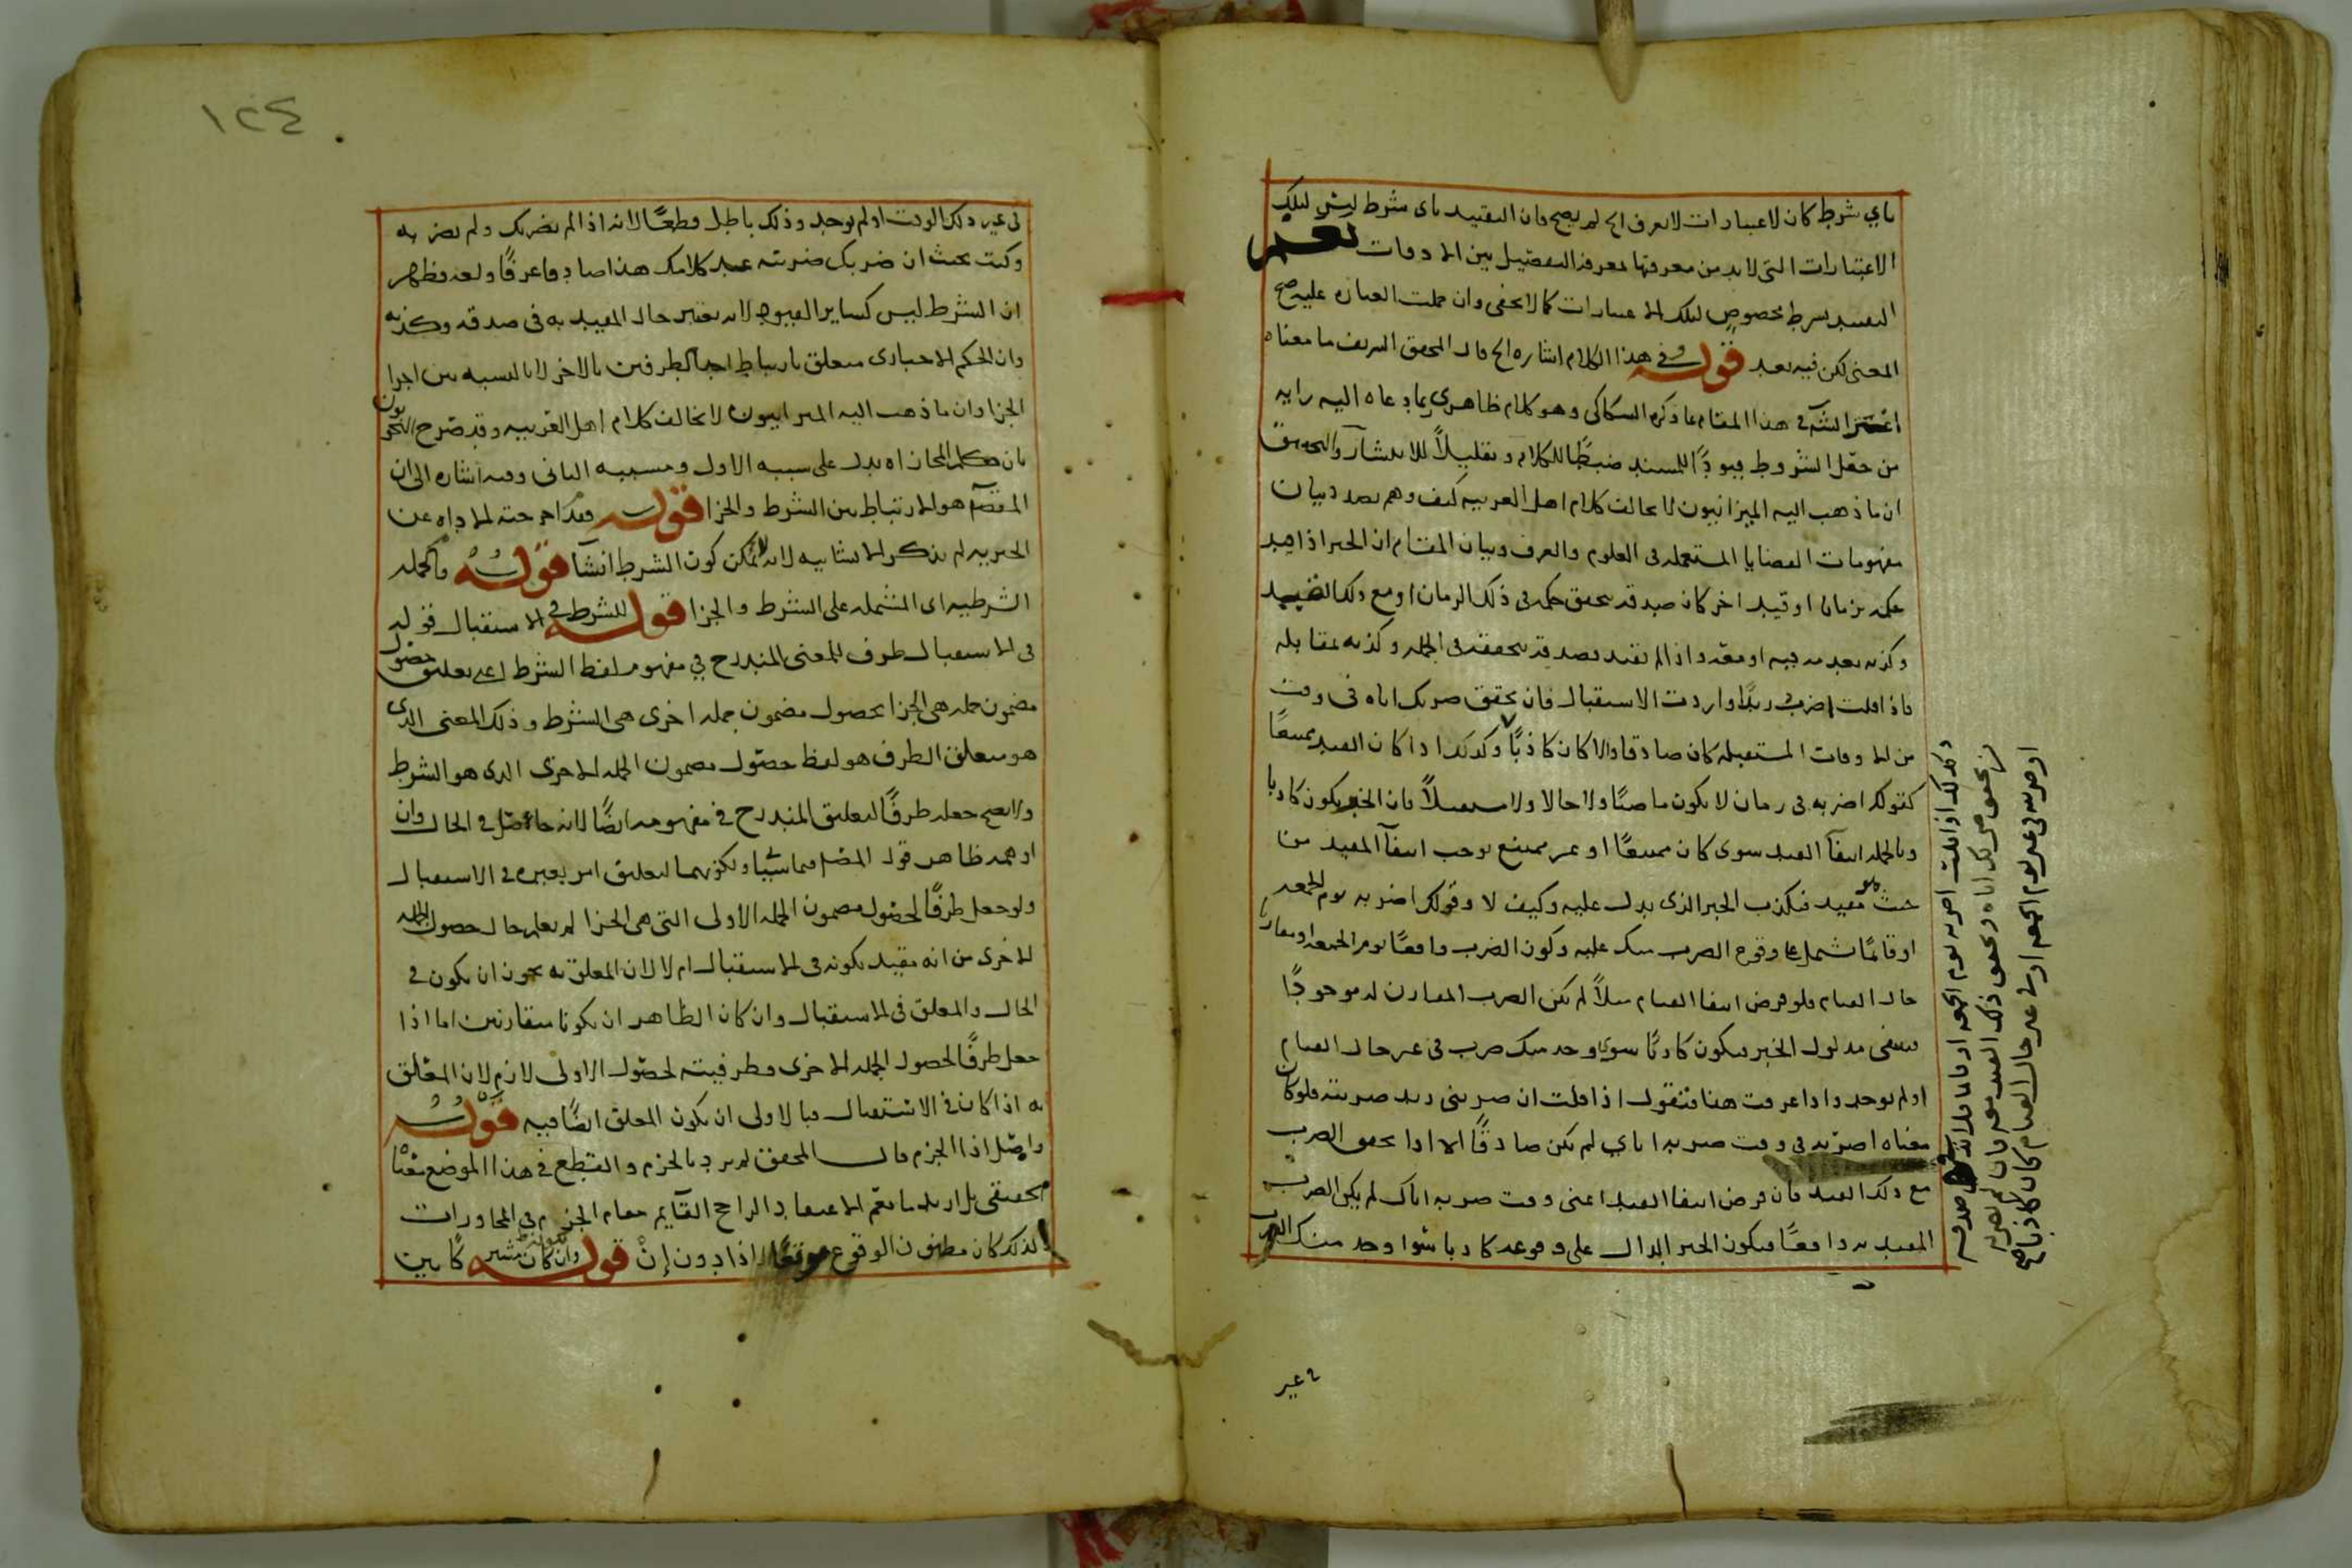 باي شرط كان لاعتبارات لا تعرف الخ لم يصح فان التقييد باى شرط ليس لتلك
الاعتبارات التى لا بد من معرفتها لمعرفة التفصيل بين الادوات نعم
التقييد بشرط مخصوص لتلك الاعتبارات كما لا يخفى وان حملت العبارة عليه صح
المعنى لكن فيه بعد قوله وفي هذا الكلام اشارة الخ قال المحقق الشريف ما معناه
اغتر الش في هذا المقام بما ذكره السكاكى وهو كلام ظاهرى بما دعاه اليه رايه
من جعل الشروط قيودًا للمسند ضبطًا للكلام وتقليلاً للانتشار والتحقيق
ان ما ذهب اليه الميزانيون لا يخالف كلام اهل العربية كيف وهم بصدد بيان
مفهومات القضايا المستعملة فى العلوم والعرف وبيان المقام ان الخبر اذا قيد
حكمه بزمان او قيد اخر كان صدقه بتحقق حكمه فى ذلك الزمان او مع ذلك القييد
وكذبه بعدمه فيه او معه واذا لم يقيد فصدقه بتحققه فى الجملة وكذبه بمقابله
فاذا قلت اضرب زيدًا واردت الاستقبال فان تحقق ضربك اياه فى وقت
من الاوقات المستقبلة كان صادقا والا كان كاذبًا وكذلك اذا كان القيد ممتنعًا
كقولك اضربه فى زمان لا يكون ماضيًا ولا حالا ولا مستقبلاً فان الخبر يكون كاذبا
وبالجملة انتفآ القيد سوى كان ممتنعًا او غير ممتنع يوجب انتفآ المقيد من
حيث هو مقيد فيكذب الخبر الذى يدل عليه وكيف لا وقولك اضربه يوم الجمعة
او قائمًا يشمل على وقوع الضرب منك عليه وكون الضرب واقعًا يوم الجمعة او مقارنا
حال القيام فلو فرض انتفا القيام مثلاً لم يكن الضرب المقارن له موجودًا
فينتفى مدلول الخبر فيكون كاذبًا سوى وجد منك ضرب فى غير حال القيام
او لم يوجد واذا عرفت هذا فنقول اذا قلت ان ضربنى زيد ضربته فلو كان
معناه اضربه فى وقت ضربه اياي لم يكن صادقًا الا اذا تحقق الضرب
مع ذلك القيد فان فرض انتفا القيد اعنى وقت ضربه اياك لم يكن الضرب
المقيد به واقعًا فيكون الخبر الدال على وقوعه كاذبا سوا وجد منك الضرب
وكذلك اذا قلت اضربه يوم الجمعة او قائما فلا بد فى صدقه
من تحقق ضربك اياه وتحقق ذلك القيد معه فان لم تضربه
او ضربته فى غير يوم الجمعة او فى غير حال القيام كان كاذبا صح
فى غير
١٢٤
فى غير ذلك الوقت او لم يوجد وذلك باطل قطعًا لانه اذا لم يضربك ولم تضربه
وكنت بحيث ان ضربك ضربته عد كلامك هذا صادقا عرفًا ولغة فظهر
ان الشرط ليس كساير القيود لانه يعتبر حال المقيد به فى صدقه وكذبه
وان الحكم الاخبارى متعلق بارتباط احد الطرفين بالاخر لا بالنسبة بين اجزا
الجزا وان ما ذهب اليه الميزانيون لا يخالف كلام اهل العربية وقد صرح النحويون
بان كلم المجازاه تدل على سببيه الاول ومسببيه الثانى وفيه اشارة الى ان
المقصم هو الارتباط بين الشرط والجزا قوله فقد اخرجته الاداه عن
الخبرية لم يذكر الانشائيه لانه لا يمكن كون الشرط انشآ قوله فالجملة
الشرطيه اى المشتملة على الشرط والجزا قوله للشرط فى الاستقبال قوله
فى الاستقبال ظرف للمعنى المندرج في مفهوم لفظ الشرط اعنى تعليق حصول
مضمون جملة هى الجزا بحصول مضمون جملة اخرى هى الشرط وذلك المعنى الذى
هو متعلق الظرف هو لفظ حصول مضمون الجملة الاخرى الذى هو الشرط
ولا يصح جعله ظرفًا للتعليق المندرج فى مفهومه ايضًا لانه حاصل فى الحال وان
اوهمه ظاهر قول المصم فيما سياتى ولكونهما لتعليق امر بغيره فى الاستقبال
ولو جعل ظرفًا لحصول مضمون الجملة الاولى التى هى الجزا لم يعلم حال حصول الجملة
الاخرى من انه مقيد بكونه فى الاستقبال ام لا لان المعلق به يجوز ان يكون فى
الحال والمعلق فى الاستقبال وان كان الظاهر ان يكونا متقارنين اما اذا
جعل ظرفًا لحصول الجملة الاخرى فظرفيته لحصول الاولى لازم لان المعلق
به اذا كان فى الاستقبال فبالاولى ان يكون المعلق ايضًا فيه قوله
واصل اذا الجزم قال المحقق لم يرد بالجزم والقطع فى هذا الموضع معنًا
تحقيقى بل اريد ما يعم الاعتقاد الراجح القآيم مقام الجزم فى المحاورات
ولذلك كان مظنون الوقوع موقعًا اذا دون إنْ قوله وان كان مشير كاين